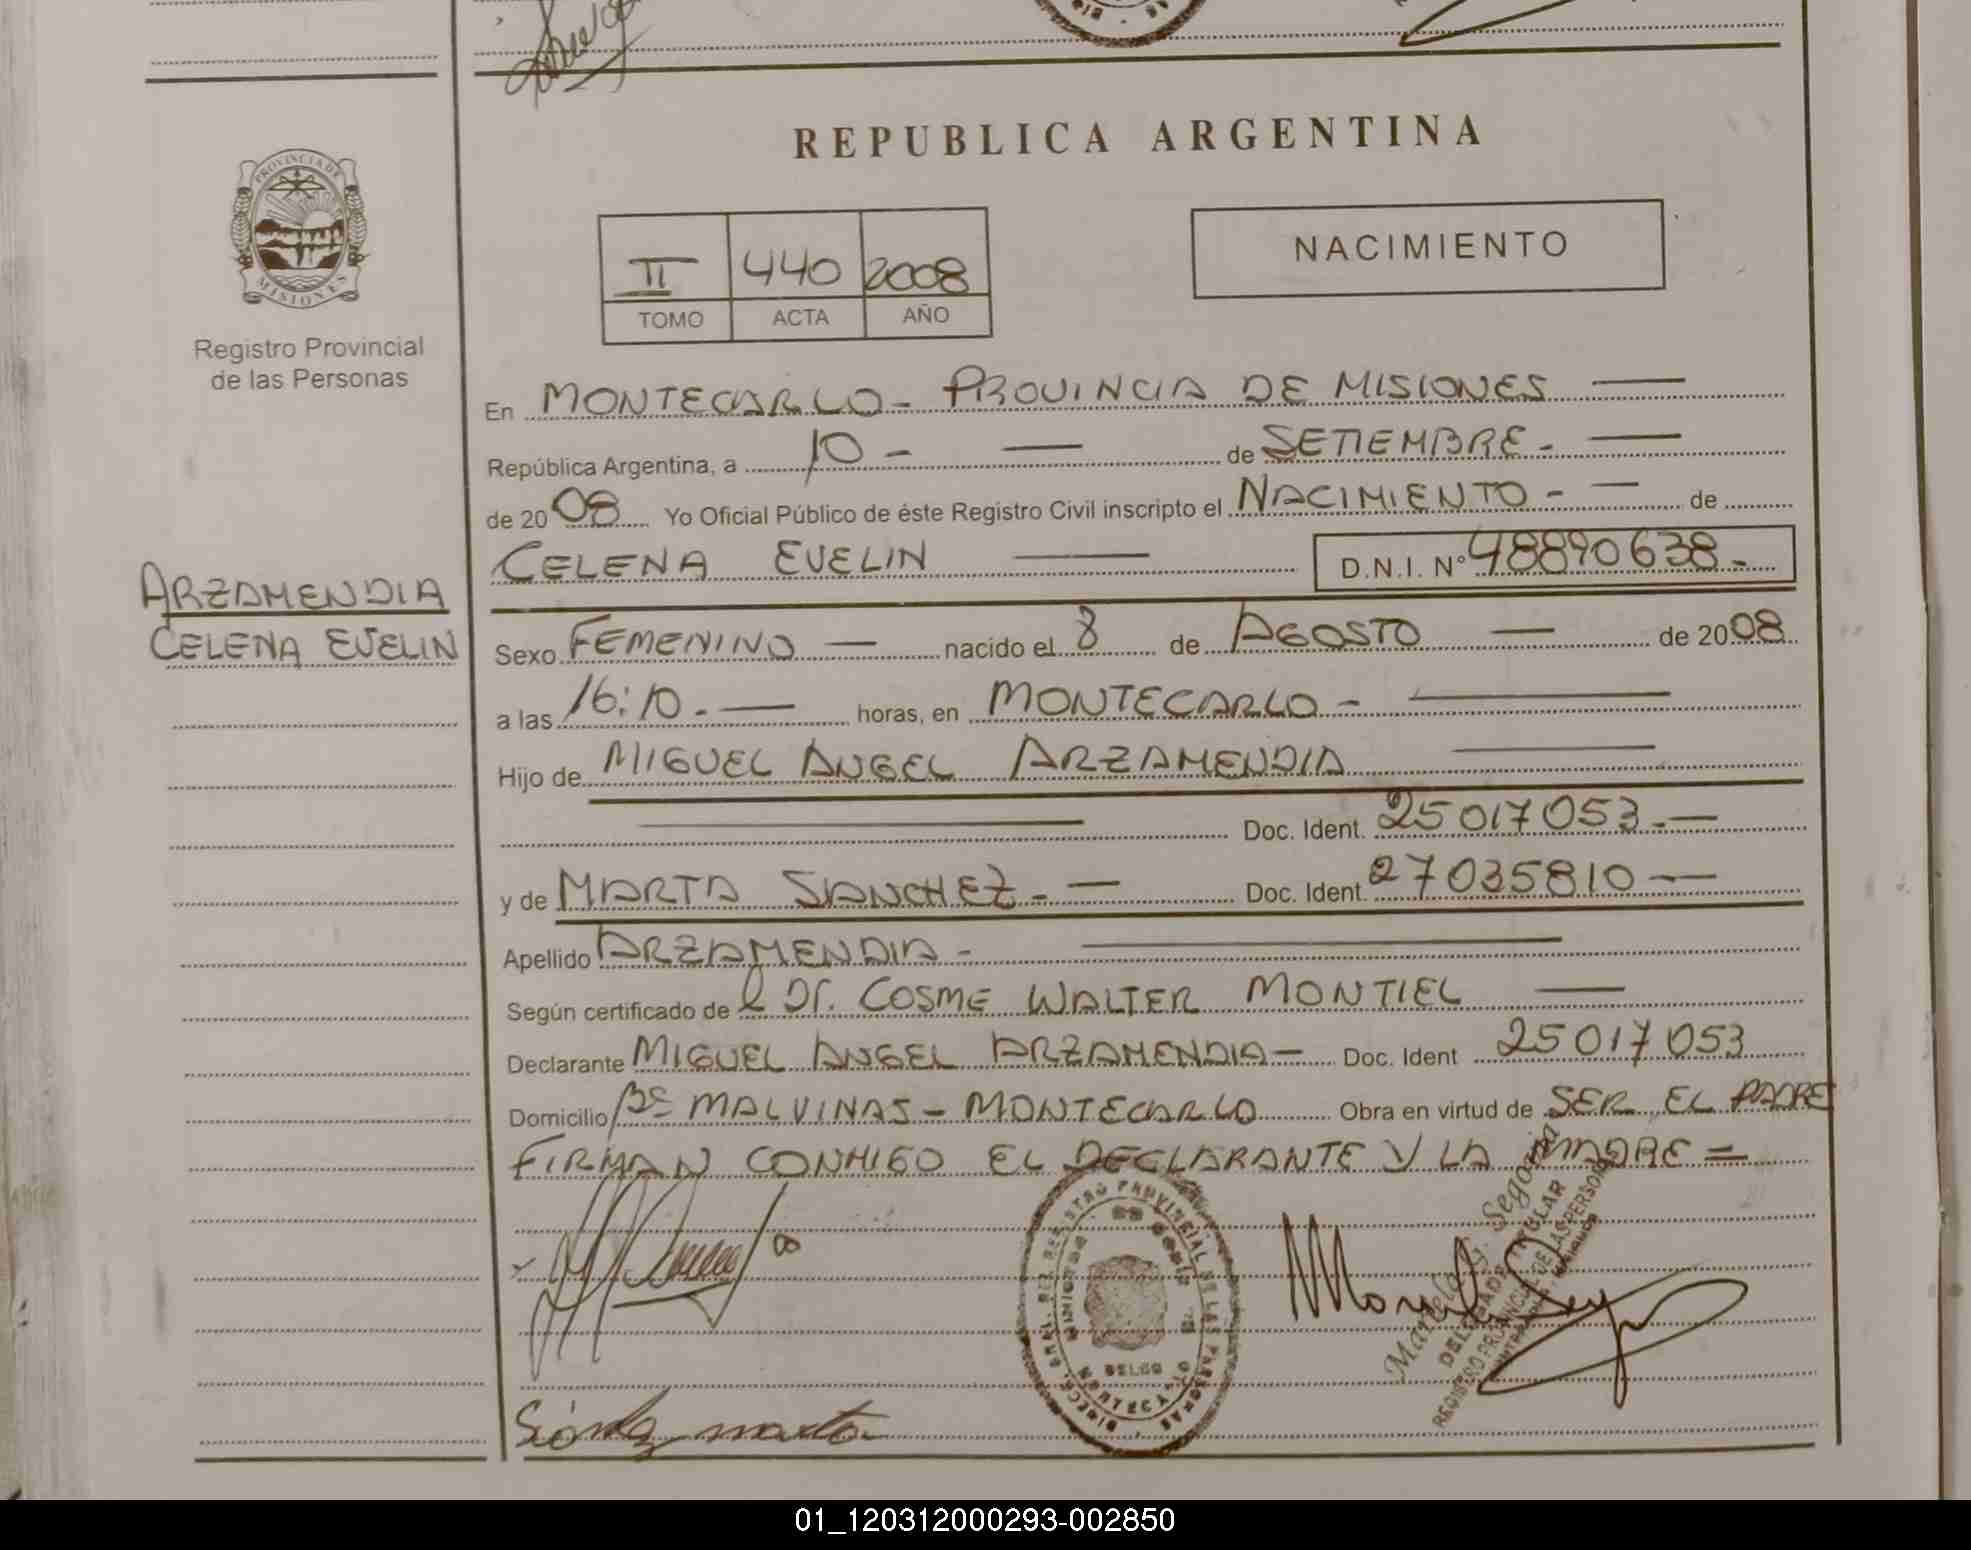 REPUBLICA ARGENTINA
PROVINCIA DE
MISIONES
Registro Provincial
de las Personas
II 440 2008
TOMO ACTA AÑO
NACIMIENTO
En MONTECARLO - PROVINCIA DE MISIONES
República Argentina, a 10 - de SETIEMBRE -
de 2008 Yo Oficial Público de éste Registro Civil inscripto el NACIMIENTO - de
CELENA EVELIN D.N.I. Nº 48890638 -
ARZAMENDIA
CELENA EVELIN
Sexo FEMENINO nacido el 8 de AGOSTO de 2008
a las 16:10 - horas, en MONTECARLO -
Hijo de MIGUEL ANGEL ARZAMENDIA
Doc. Ident. 25017053 -
y de MARTA SANCHEZ - Doc. Ident. 27035810
Apellido ARZAMENDIA -
Según certificado de l Dr. COSME WALTER MONTIEL
Declarante MIGUEL ANGEL ARZAMENDIA Doc. Ident 25017053
Domicilio Bº MALVINAS - MONTECARLO Obra en virtud de SER EL PADRE
FIRMAN CONMIGO EL DECLARANTE Y LA MADRE =
Sánchez marta
01_120312000293-002850